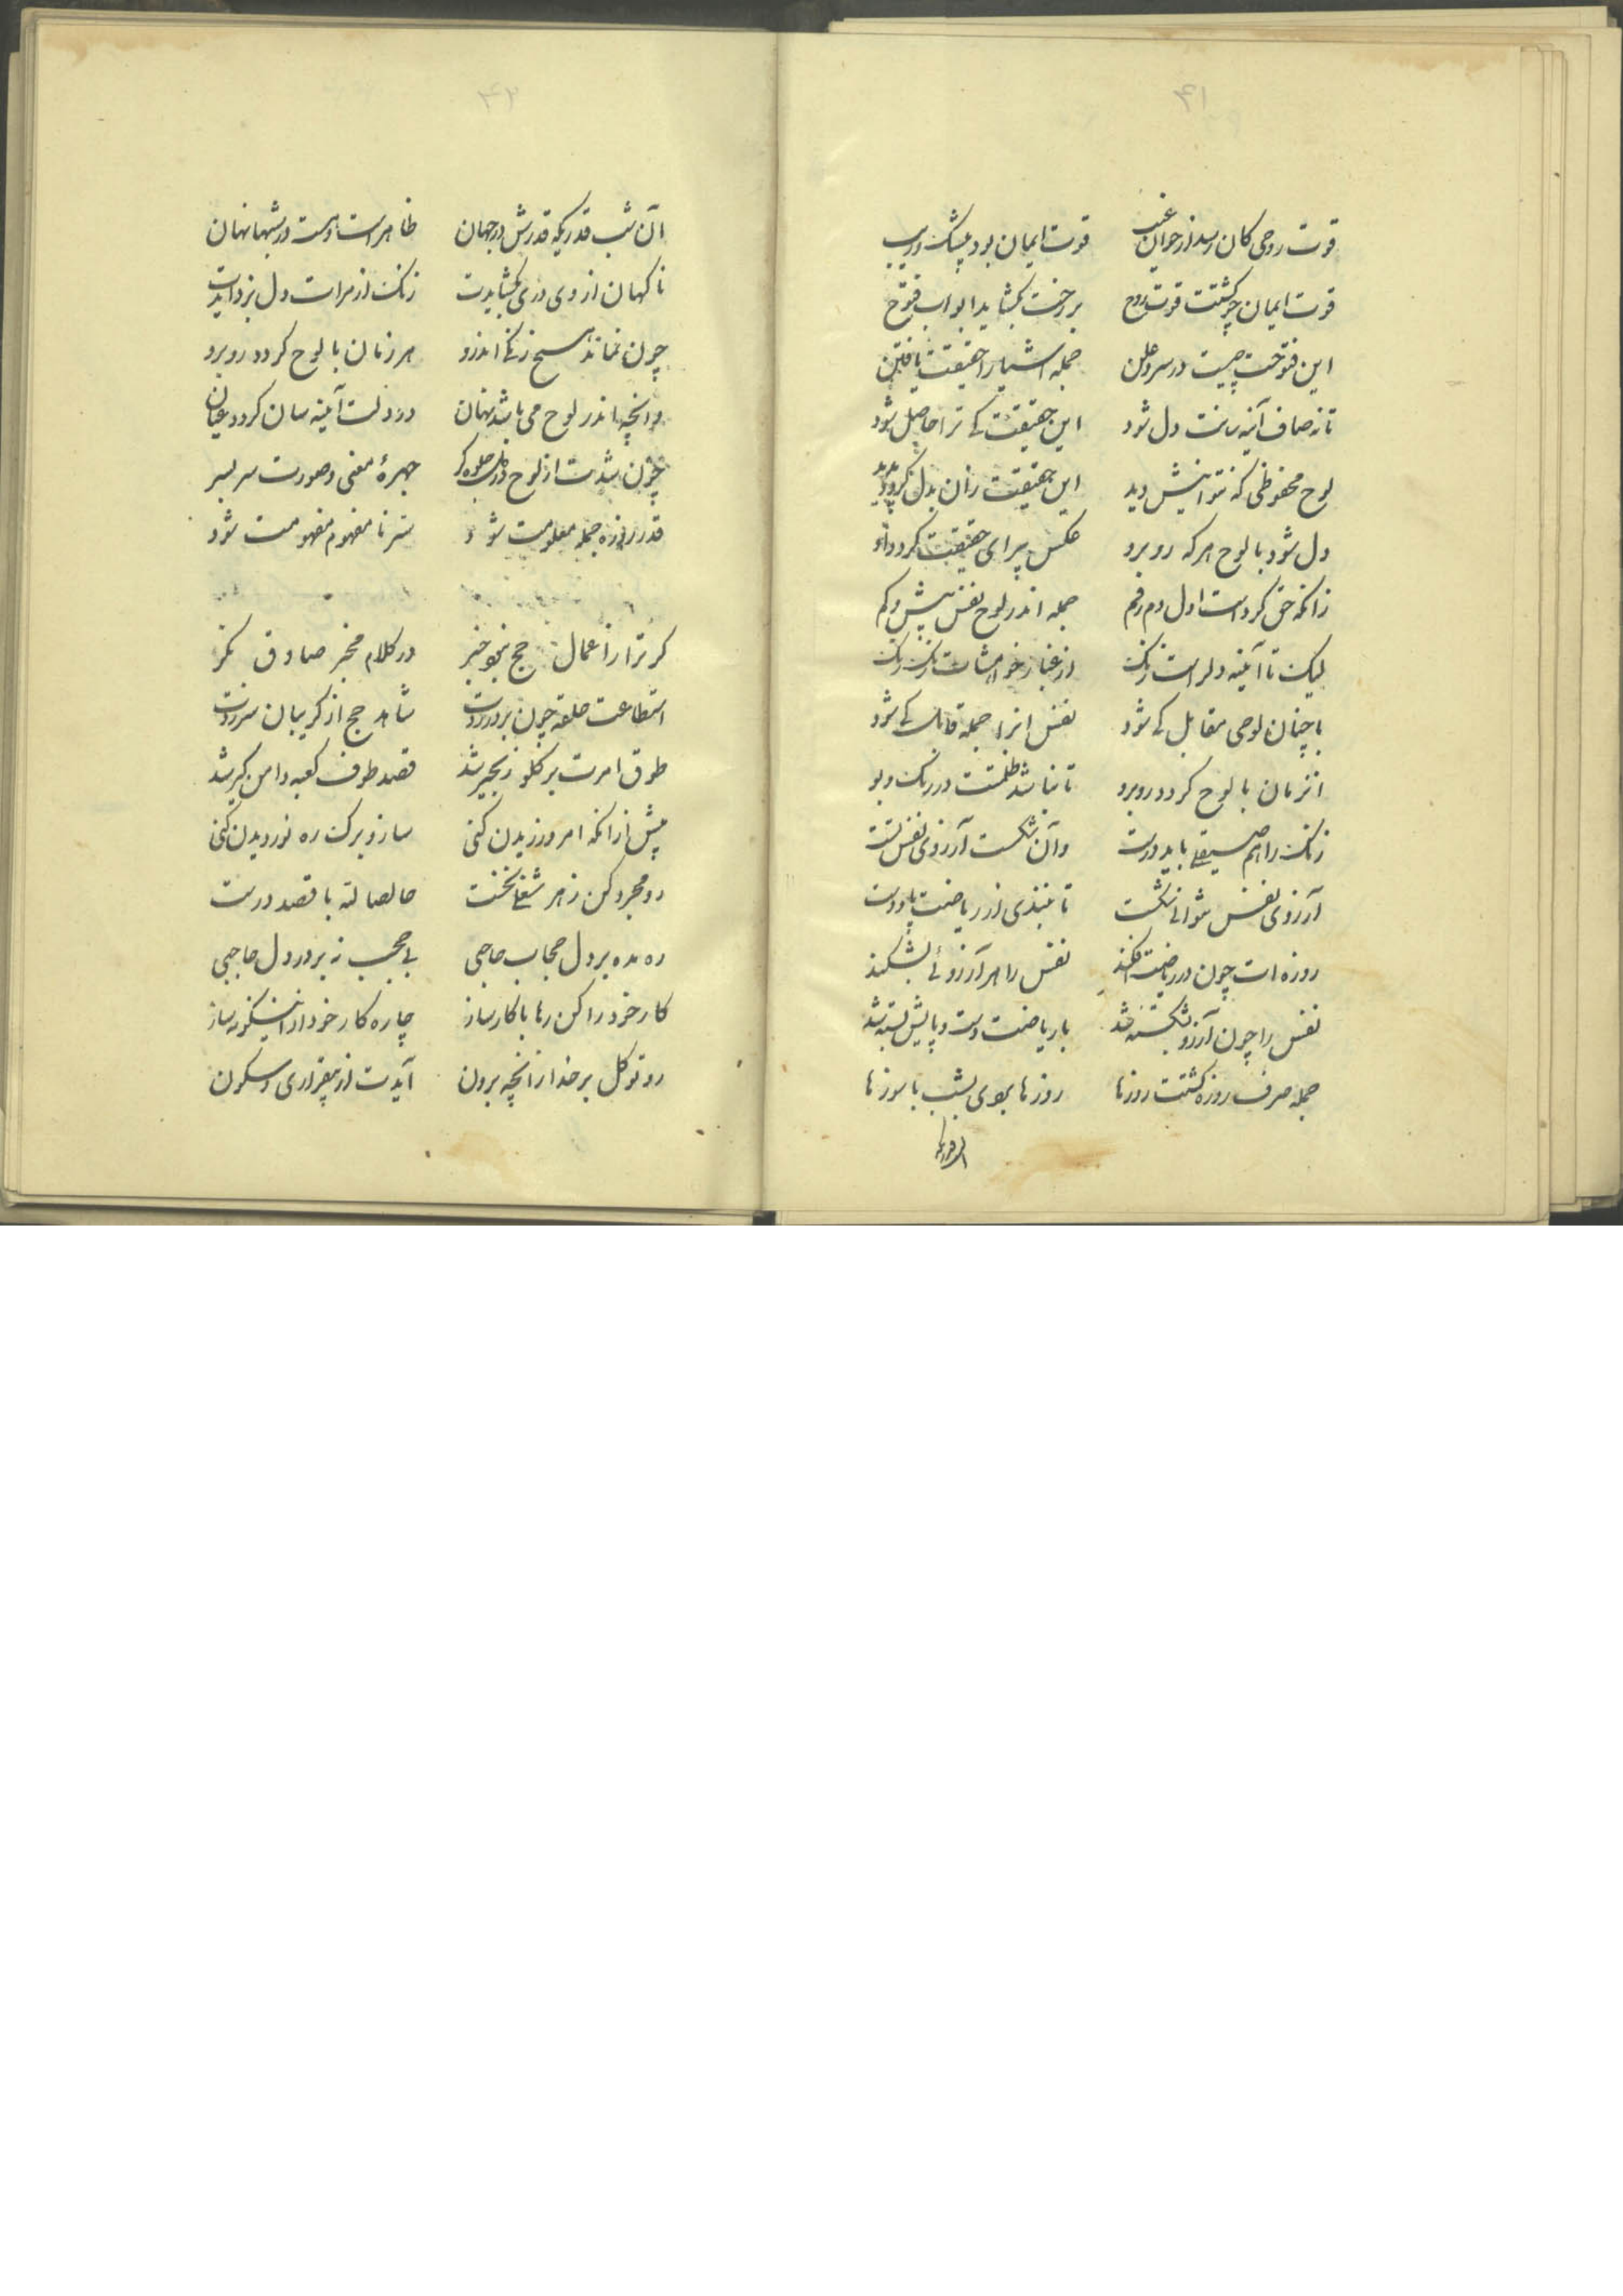 ۴۱
قوت روحی کان رسد از خوان غیب قوت ایمان بود بیشک و ریب
قوت ایمان چو کشتت قوت روح بر رخت بکشاید ابواب فتوح
این فتوحت چیست در سر و علن جمله اشیا را حقیقت یافتن
تا نه صاف آئینه سانت دل شود این حقیقت کی ترا حاصل شود
لوح محفوظی که نتوانیش دید این حقیقت زان بدل کردد پدید
دل شود با لوح هر که روبرو عکس پیرای حقیقت کردد او
زانکه حق کرد است اول دم رقم جمله اندر لوح نقش بیش و کم
لیک تا آئینه دلراست زنک از غبار خواهشات رنک رنک
با چنان لوحی مقابل کی شود نقش انرا جمله قابل کی شود
انزمان با لوح کردد روبرو تا نباشد ظلمتت در رنک و بو
زنک را هم صیقلی باید درست وآن شکست آرزوی نفس تست
آرزوی نفس نتوانی شکست تا نبندی از ریاضت پا و دست
روزه ات چون در ریاضت افکند نفس را هر آرزوئی بشکند
نفس را چون آرزو بشکسته شد با ریاضت دست و پایش بسته شد
جمله صرف روزه کشتت روزها روزها بوی بشب با سوزها
۴۲
آن شب قدریکه قدرش در جهان ظاهر است و هست در شبها نهان
ناکهان از وی دری بکشایدت زنک از مرات دل بزدایدت
چون نماند هیچ زنکی اندرو هر زمان با لوح کردد روبرو
وانچه اندر لوح می باشد نهان در دلت آئینه سان کردد عیان
چون شدت از لوح در دل جلوه کر چهرهٔ معنی و صورت سر بسر
قدر روزه جمله معلومت شود سر نا مفهوم مفهومت شود
کر ترا از اعمال حج نبو خبر در کلام مخبر صادق نکر
استطاعت حلقه چون بر در زدت شاهد حج از کریبان سر زدت
طوق امرت بر کلو زنجیر شد قصد طوف کعبه دامن کیر شد
پیش از آنکه امر ورزیدن کنی ساز و برک ره نوردیدن کنی
رو مجرد کن ز هر شغلی نخست خالصا لله با قصد درست
ره مده بر دل حجاب حاجبی بی حجب نه بر در دل حاجبی
کار خود را کن رها با کارساز چاره کار خود از نیکونه ساز
رو توکل بر خدا ز انچه برون آیدت از بیقراری و سکون